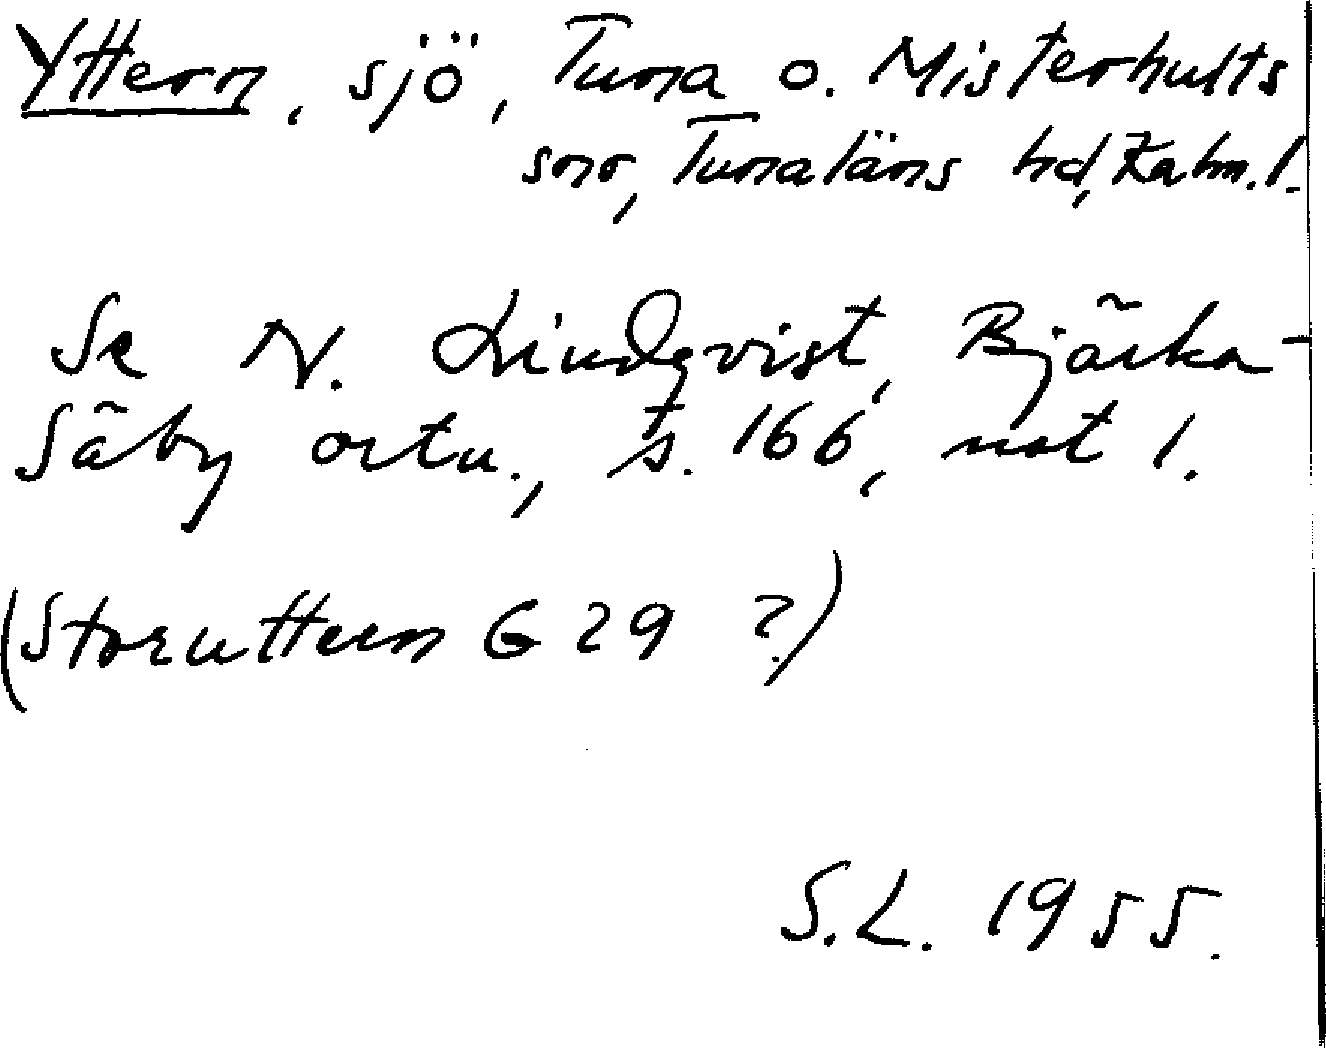 Yttern, sjö, Tuna o. Misterhults
snr, Tunaläns hd, Kalm. l.
Se N. Lindqvist, Bjärka-
Säby ortn., s. 166, not 1.
(Storuttern G 29 ?)
S.L. 1955.